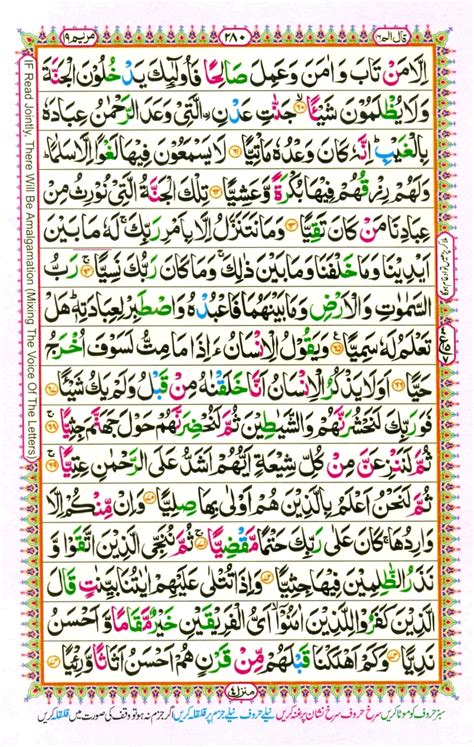 قال الم ١٦
٢٨٠
مريم ١٩
اِلَّا مَنْ تَابَ وَاٰمَنَ وَعَمِلَ صَالِحًا فَاُولٰٓئِكَ يَدْخُلُوْنَ الْجَنَّةَ
وَلَا يُظْلَمُوْنَ شَيْـًٔا ۙ﴿۶۰﴾ جَنّٰتِ عَدْنِ ِۨالَّتِيْ وَعَدَ الرَّحْمٰنُ عِبَادَهٗ
بِالْغَيْبِ ؕ اِنَّهٗ كَانَ وَعْدُهٗ مَاْتِيًّا ﴿۶۱﴾ لَا يَسْمَعُوْنَ فِيْهَا لَغْوًا اِلَّا سَلٰمًا ؕ
وَلَهُمْ رِزْقُهُمْ فِيْهَا بُكْرَةً وَّعَشِيًّا ﴿۶۲﴾ تِلْكَ الْجَنَّةُ الَّتِيْ نُوْرِثُ مِنْ
عِبَادِنَا مَنْ كَانَ تَقِيًّا ﴿۶۳﴾ وَمَا نَتَنَزَّلُ اِلَّا بِاَمْرِ رَبِّكَ ۚ لَهٗ مَا بَيْنَ
اَيْدِيْنَا وَمَا خَلْفَنَا وَمَا بَيْنَ ذٰلِكَ ۚ وَمَا كَانَ رَبُّكَ نَسِيًّا ﴿۶۴﴾ رَبُّ
السَّمٰوٰتِ وَالْاَرْضِ وَمَا بَيْنَهُمَا فَاعْبُدْهُ وَاصْطَبِرْ لِعِبَادَتِهٖ ؕ هَلْ
تَعْلَمُ لَهٗ سَمِيًّا ﴿۶۵﴾ وَيَقُوْلُ الْاِنْسَانُ ءَاِذَا مَا مِتُّ لَسَوْفَ اُخْرَجُ
حَيًّا ﴿۶۶﴾ اَوَلَا يَذْكُرُ الْاِنْسَانُ اَنَّا خَلَقْنٰهُ مِنْ قَبْلُ وَلَمْ يَكُ شَيْـًٔا ﴿۶۷﴾
فَوَرَبِّكَ لَنَحْشُرَنَّهُمْ وَالشَّيٰطِيْنَ ثُمَّ لَنُحْضِرَنَّهُمْ حَوْلَ جَهَنَّمَ جِثِيًّا ﴿۶۸﴾
ثُمَّ لَنَنْزِعَنَّ مِنْ كُلِّ شِيْعَةٍ اَيُّهُمْ اَشَدُّ عَلَى الرَّحْمٰنِ عِتِيًّا ﴿۶۹﴾
ثُمَّ لَنَحْنُ اَعْلَمُ بِالَّذِيْنَ هُمْ اَوْلٰى بِهَا صِلِيًّا ﴿۷۰﴾ وَاِنْ مِّنْكُمْ اِلَّا
وَارِدُهَا ۚ كَانَ عَلٰى رَبِّكَ حَتْمًا مَّقْضِيًّا ﴿۷۱﴾ ثُمَّ نُنَجِّي الَّذِيْنَ اتَّقَوْا وَّ
نَذَرُ الظّٰلِمِيْنَ فِيْهَا جِثِيًّا ﴿۷۲﴾ وَاِذَا تُتْلٰى عَلَيْهِمْ اٰيٰتُنَا بَيِّنٰتٍ قَالَ
الَّذِيْنَ كَفَرُوْا لِلَّذِيْنَ اٰمَنُوْٓا ۙ اَيُّ الْفَرِيْقَيْنِ خَيْرٌ مَّقَامًا وَّاَحْسَنُ
نَدِيًّا ﴿۷۳﴾ وَكَمْ اَهْلَكْنَا قَبْلَهُمْ مِّنْ قَرْنٍ هُمْ اَحْسَنُ اَثَاثًا وَّرِءْيًا ﴿۷۴﴾
منزل ٤
سبز حروف کو موٹا کریں سرخ حروف سرخ نشان پر غنہ کریں نیلے حروف نیلے جزم پر قلقلہ کریں اگر جزم نہ ہو تو وقف کی صورت میں قلقلہ کریں
IF Read Jointly, There Will Be Amalgamation (Mixing The Voice Of The Letters)